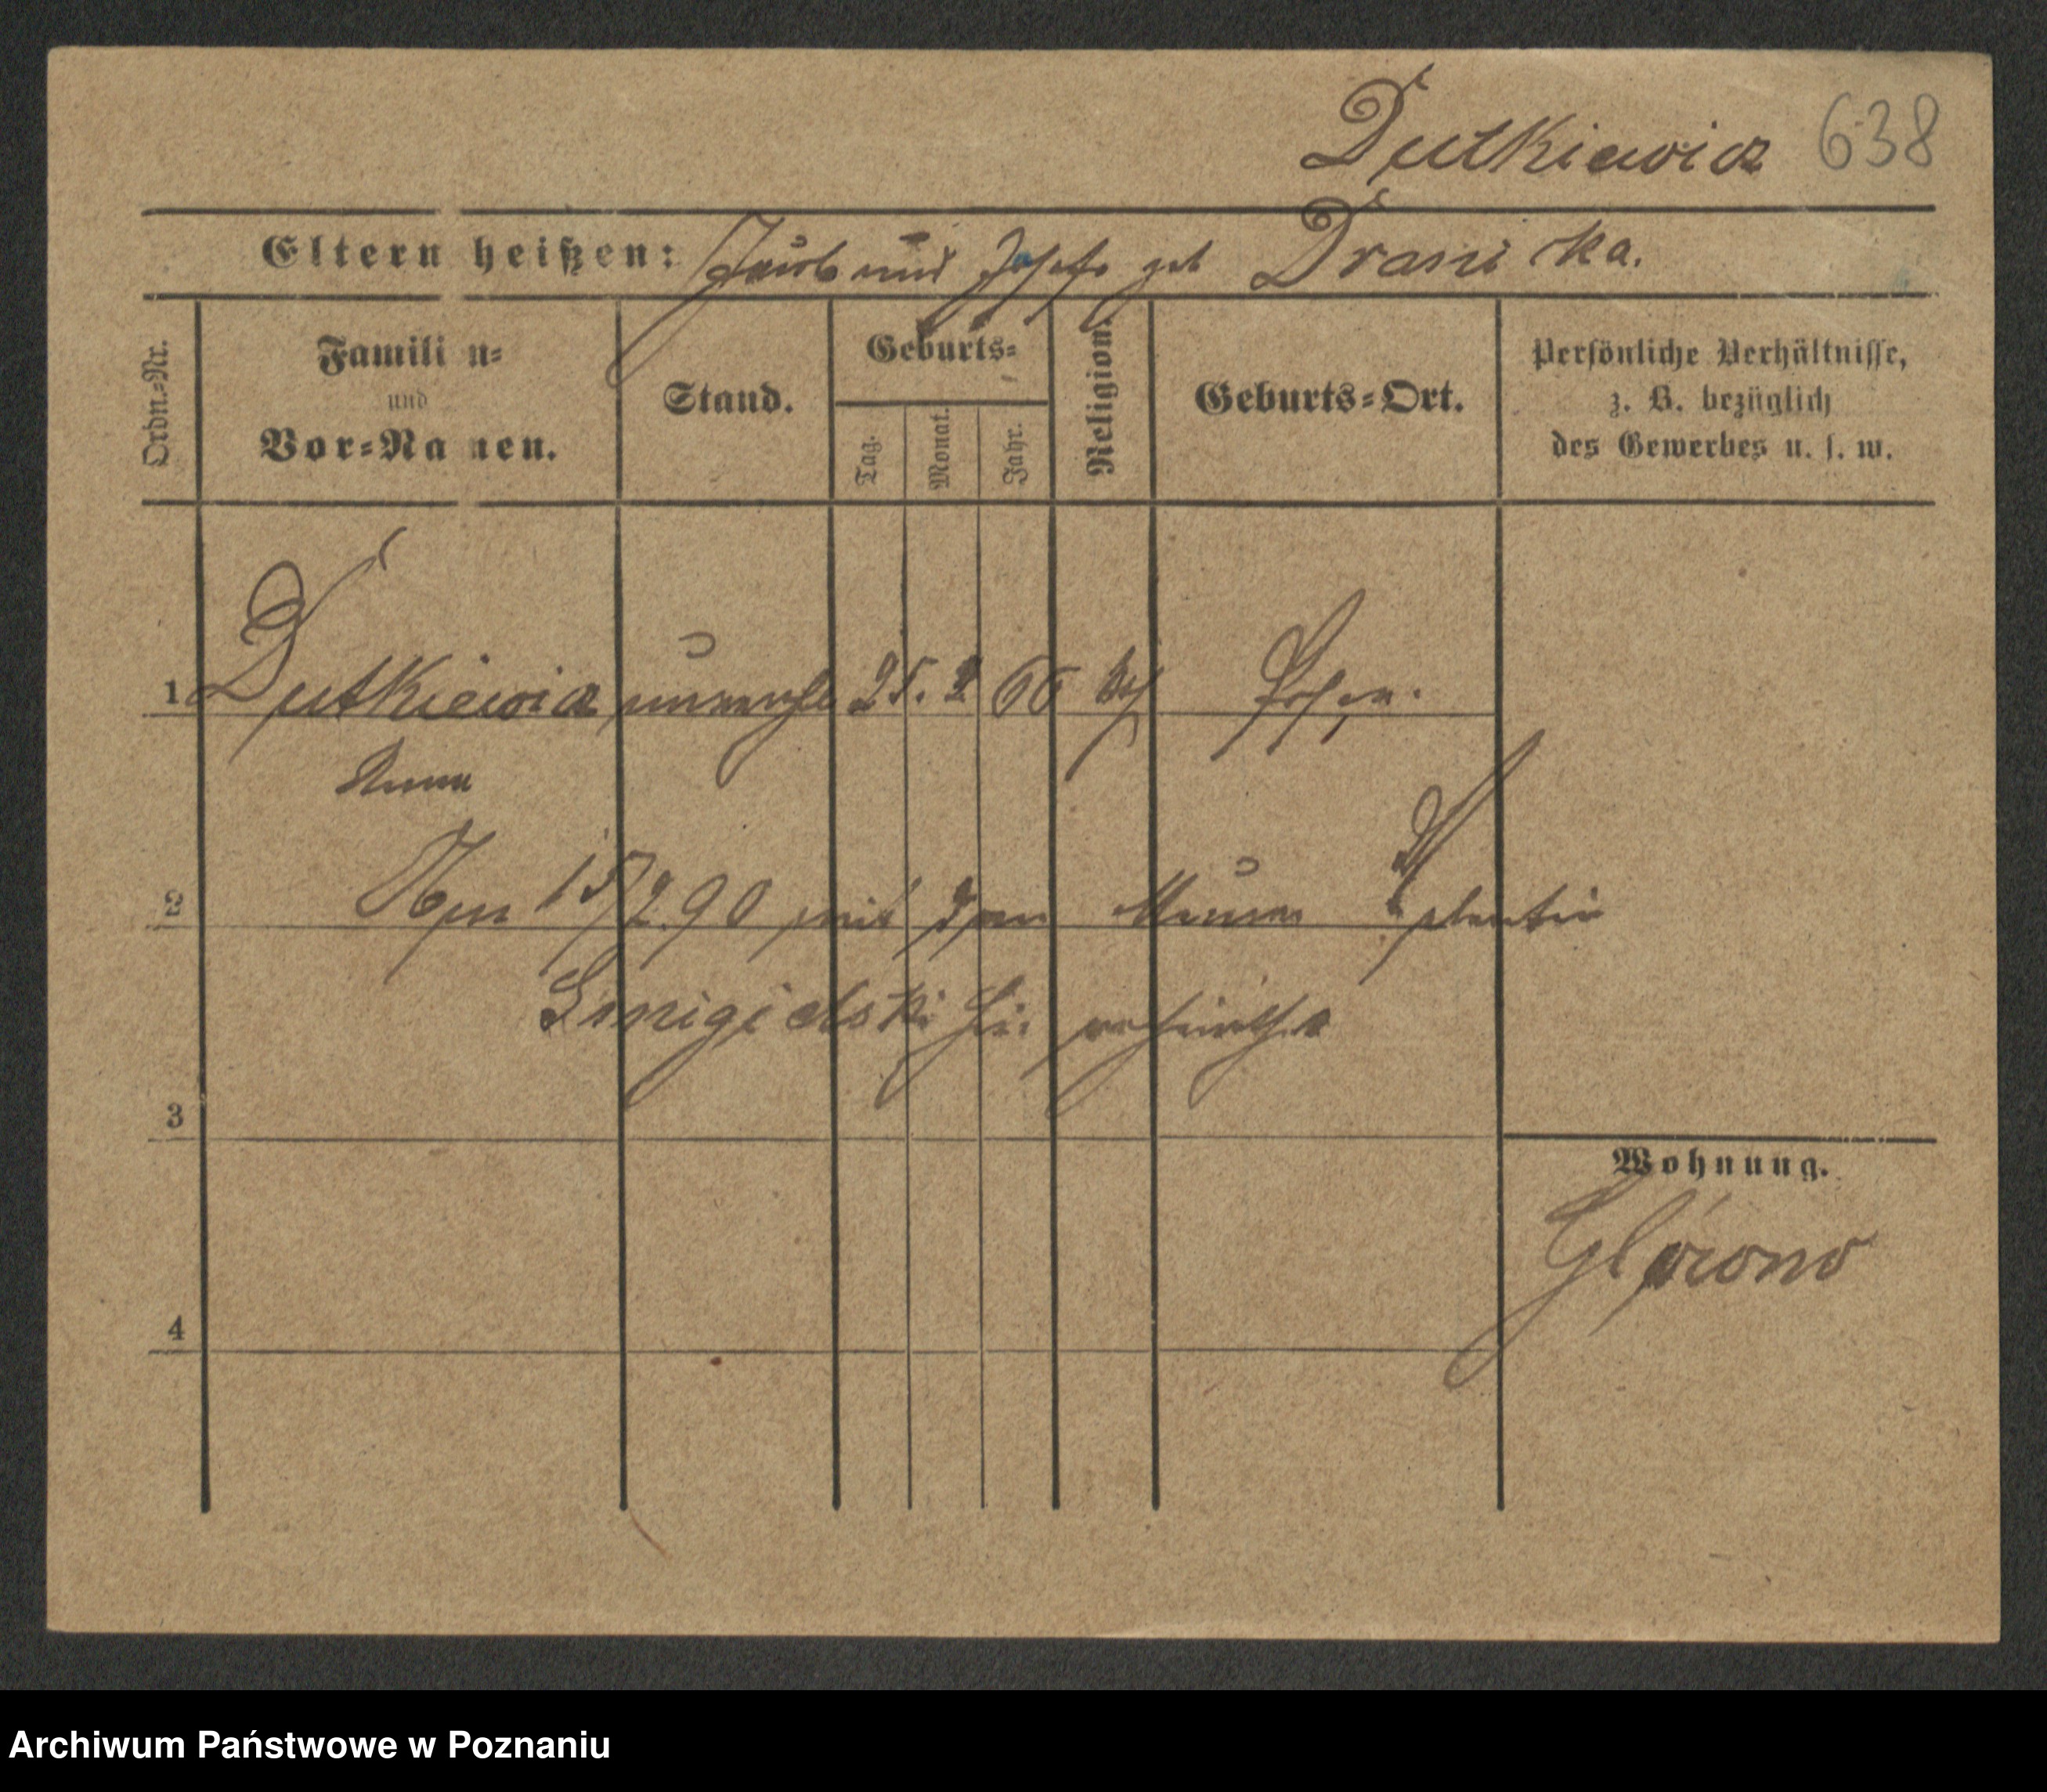 Dutkiewicz 638
Eltern heißen: Jakob und Josefa geb Dranska.
Ordn.-Nr.
Famili n-
und
Vor-Na nen.
Stand.
Geburts-
Tag.
Monat.
Jahr.
Religion.
Geburts-Ort.
Persönliche Verhältnisse,
z. B. bezüglich
des Gewerbes u. s. w.
1 Dutkiewicz unverehl 25. 2 66 kth Posen.
Anna
2 Am 15/2.90 mit dem Maurer
hier verheirathet
3
Wohnung.
Glówno
4
Archiwum Państwowe w Poznaniu